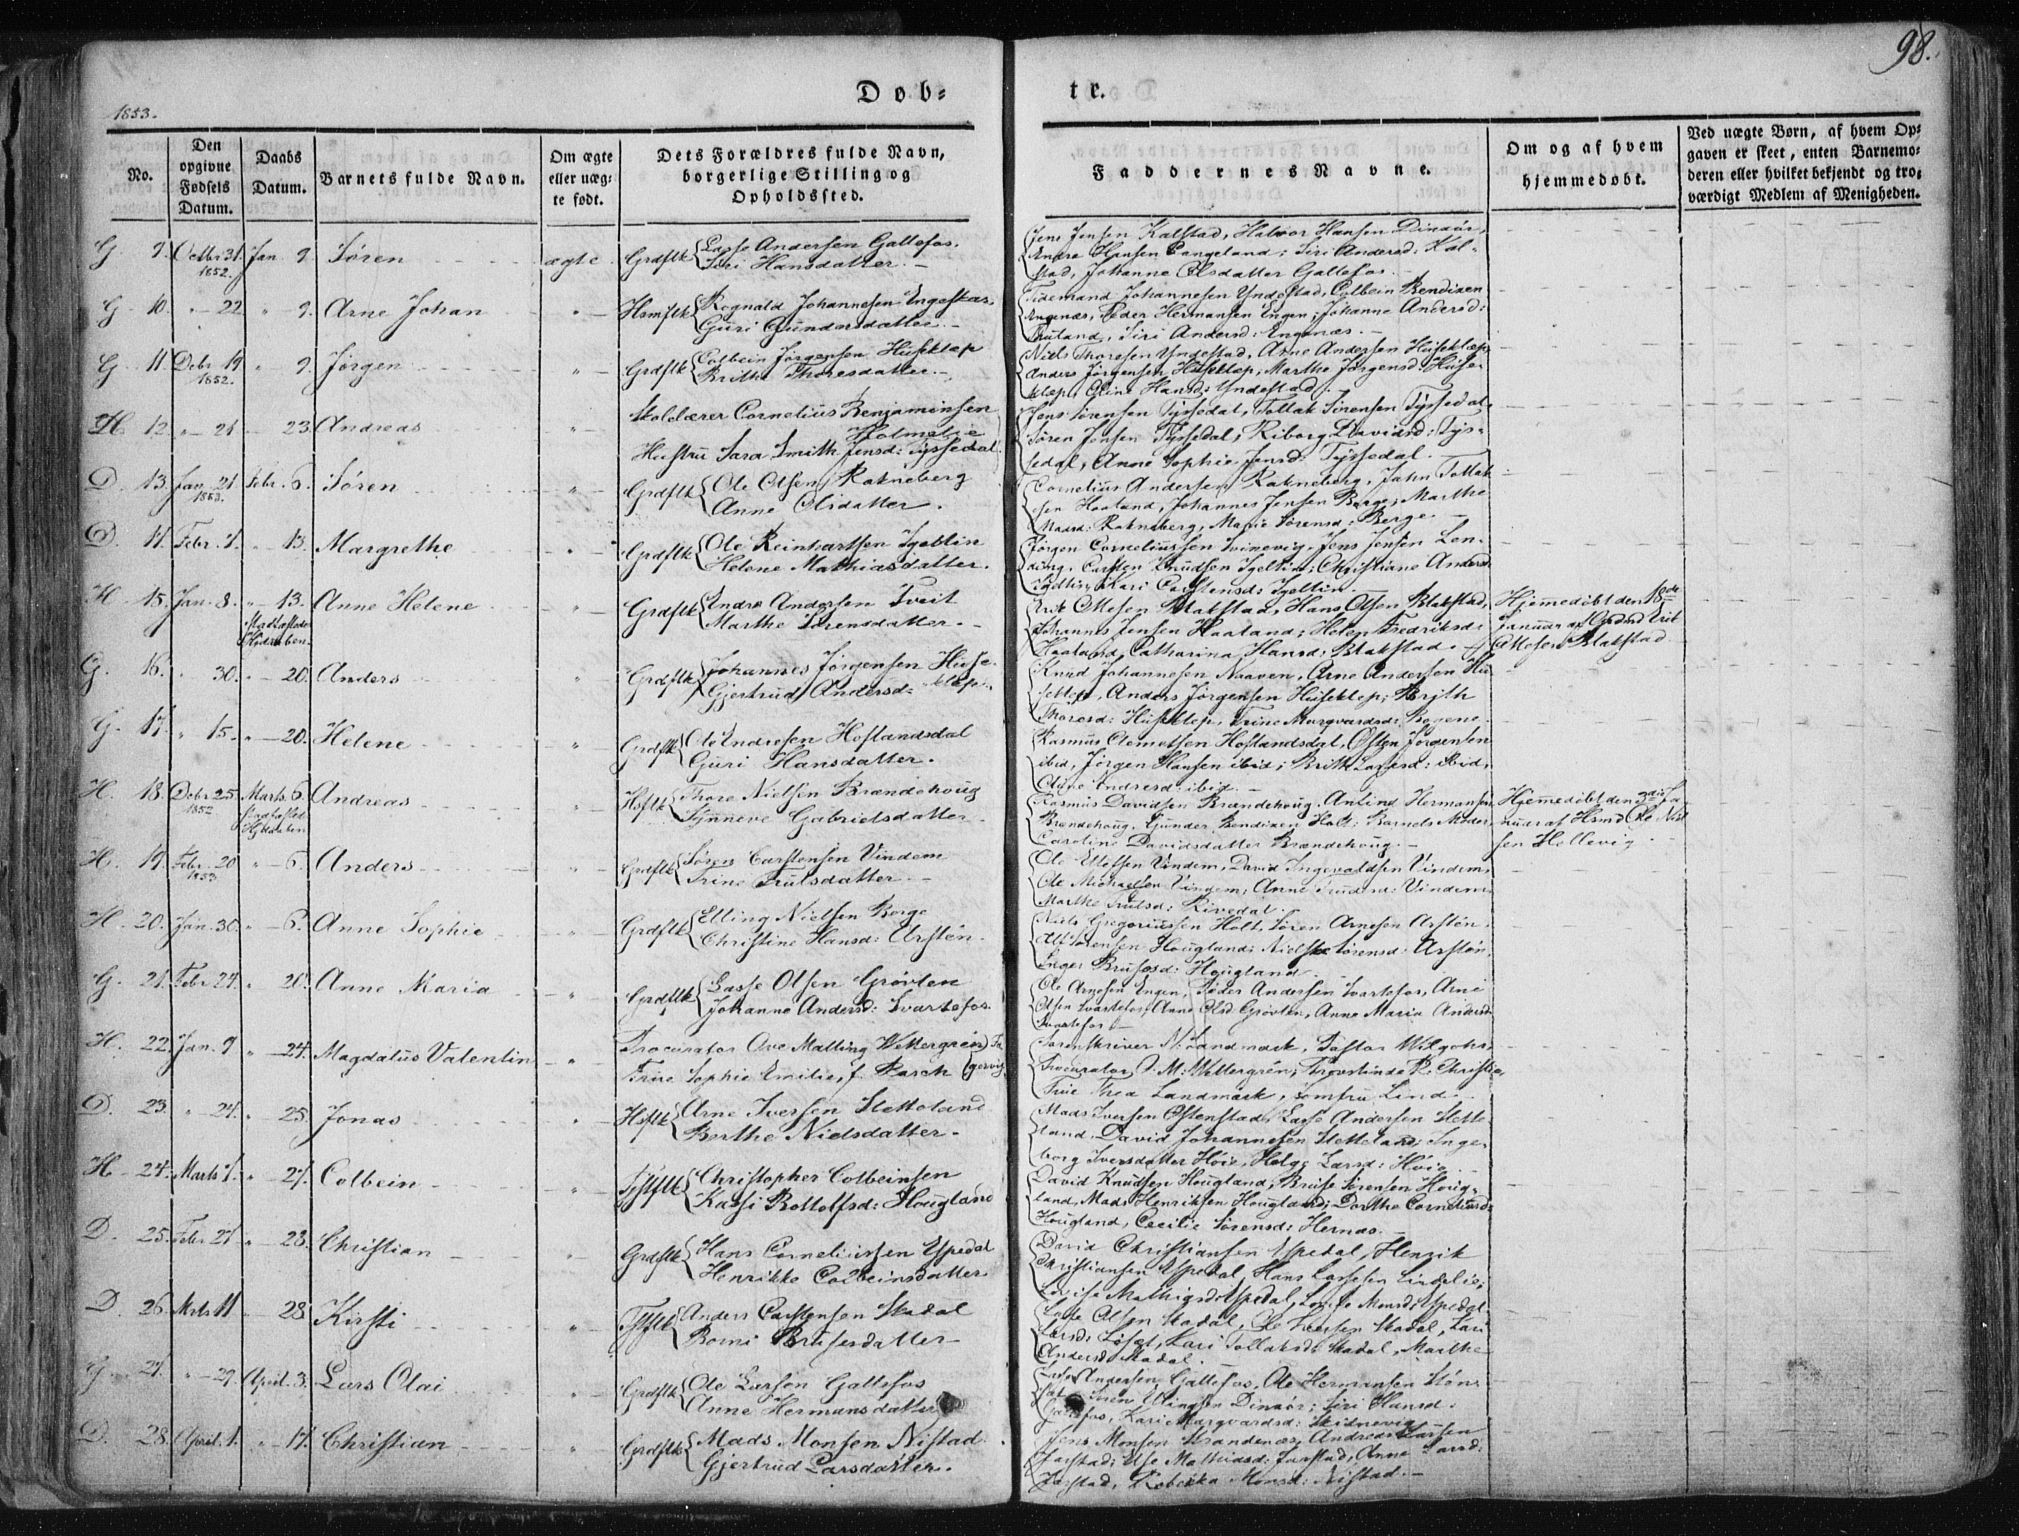 98.
Døb-
tr.
1853.
No.
Den opgivne Fødsels Datum.
Daabs Datum.
Barnets fulde Navn.
Om ægte eller uæg-te født.
Dets Forældres fulde Navn, borgerlige Stilling og Opholdssted.
Faddernes Navne.
Om og af hvem hjemmedøbt.
Ved uægte Børn, af hvem Op-gaven er skeet, enten Barnemo-deren eller hvilket bekjendt og tro-værdigt Medlem af Menigheden.
G. 9. Octbr 31. 1852. Jan 9. Søren ægte Grdflk Lasse Andersen Gallefos.
Siri Hansdatter.
Halvor Hansen Dinaør,
Siri Andersd: Kal-
stad, Johanne Olsdatter Gallefos.
G. 10. " 22 " 9. Arne Johan " Hsmflk Rognald Johannesen Engeskar
Guri Gundersdatter.
Tidemand Johannesen Yndestad, Colbein Bendixen
Engenæs, Peder Hermansen Engen, Johanne Andersd:
Siri Andersd: Engenæs.
G 11. Debr 19 1852. " 9. Jørgen " Grdflk Colbein Jørgensen Huseklep
Brithe Thoresdatter.
Niels Thoresen Yndestad, Arne Andersen Huseklep,
Anders Jørgensen Huseklep, Marthe Jørgensd: Huse-
klep, Eline Hansd: Yndestad.
H. 12. " 21 " 23. Andreas " Skolelærer Cornelius Benjaminsen
Holmelie
Hustru Sara Smith Jensd: Tyssedal
Jens Sørensen Tyssedal, Tollak Sørensen Tyssedal,
Søren Jensen Tyssedal, Riborg Davidsd: Tys-
sedal, Anne Sophie Jensd: Tyssedal.
D. 13. Jan. 21 1853. Febr. 6. Søren " Grdflk Ole Olsen Rakneberg
Anne Olsdatter.
Cornelius Andersen Rakneberg, John Tollak-
sen Haaland, Johannes Jensen Berge, Marthe
Madsd: Rakneberg, Marie Sørensd: Berge.
D. 14. Febr. 1. " 13. Margrethe " Grdflk Ole Reinhartsen Igeltin
Helene Mathiasdatter.
Jørgen Corneliussen Svinevig, Jens Jensen Len-
ning, Carsten Knudsen Igeltin, Christiane Andersd:
Igeltin, Kari Carstensd: Igeltin.
H. 15. Jan. 8. " 13. Anne Helene " Grdflk Endre Andersen Tveit
Marthe Sørensdatter.
Erik Olllesen Blakstad, Hans Olsen Blakstad,
Johannes Jensen Haaland, Helene Fredriksd:
Haaland, Catharina Hansd: Blakstad.
Hjemmedøbt den 18de
Januar af Erik
Blakstad
G. 16. " 30. " 20. Anders " Grdflk Johannes Jørgensen Huse-
Gjertrud Andersd: klep.
Knud Johannesen Naaven, Arne Andersen Hu-
seklep, Anders Jørgensen Huseklep, Brith
Thoresd: Huseklep, Trine Marqvardsd:
G. 17. " 15. " 20. Helene " Grdflk Ole Endresen Hoflandsdal
Guri Hansdatter.
Rasmus Clemetsen Hoflandsdal, Osten Jørgensen
ibid, Jørgen Hansen ibid, Brithe Larsd: ibid,
Endresd: ibid.
H. 18. Debr 25. 1852 Marts 6. Andreas " Hsflk Thore Nielsen Brændehoug
Synneve Gabrielsdatter.
Rasmus Davidsen Brændehoug, Hermansen
Brændehoug, Gunder Bendixen Holt, Barnets Moder,
Caroline Davidsdatter Brændehoug.
Hjemmedøbt den Ja-
nuar af Ole Niel-
sen Hellevig.
H. 19. Febr 20 1853. " 6. Anders " Grdflk Søren Carstensen Vindem
Trine Trulsdatter
Ole Ellefsen Vindem, David Ingevaldsen Vindem,
Ole Michaelsen Vindem, Anne Vindem,
Marthe Trulsd: Rivedal.
H. 20. Jan. 30. " 6. Anne Sophie " Grdflk Elling Nielsen Berge
Christine Hansd: Arstøn.
Niels Gregoriussen Holt, Søren Arnesen Arstøn,
Sørensen Hougland, Sørensd: Arstøn,
Inger Brusesd: Hougland.
G. 21. Febr 24. " 20. Anne Maria " Grdflk Lasse Olsen Grøvlen
Johanne Andersd: Svartefos.
Ole Arnesen Engen, Peder Andersen Svartefos, Arne
Olsen Svartefos, Anne Olsd Grøvlen, Anne Maria Andersd:
Svartefos
H. 22. Jan. 9 " 24. Magdalus Valentin " Procurator Ove Malling Wettergreen
Trine Sophie Emilie, f. Parch
Sorenskriver Landmark, Pastor
Procurator O. M. Wettergreen, Provstinde R. Christie,
Frue Thea Landmark, Jomfru Lind.
D. 23. " 24. " 25. Jonas " Hsflk Arne Iversen Sletteland
Berthe Nielsdatter.
Mads Iversen Ostenstad, Lasse Andersen Slette-
land, David Johannesen Sletteland, Inge-
borg Iversdatter Høie, Helge Larsd: Høie.
H. 24. Marts 1. " 27. Colbein " Tjflk Christopher Colbeinsen
Kasi Bottolfsd: Hougland
David Knudsen Hougland, Bruse Sørensen Houg-
land, Mads Henriksen Hougland, Dorthe Corneliusd:
Hougland, Cecilie Sørensd: Hernæs.
D. 25. Febr 27 " 28. Christian " Grdflk Hans Corneliussen Espedal
Henrikke Colbeinsdatter
David Christiansen Espedal, Henrik
Christiansen Espedal, Hans Larsen Lindelie,
Lovise Mathiasd: Espedal, Lovise Monsd: Espedal.
D. 26. Mrts 11 " 28 Kirsti " Tjflk Anders Carstensen Skadal
Borni Brusesdatter
Lasse Olsen Skadal, Ole Iversen Skadal, Kari
Larsd: Kari Tollaksd: Skadal, Marthe
Andersd: Skadal.
G. 27. " 29. April. 3. Lars Olai " Grdflk Ole Larsen Gallefos
Anne Hermansdatter
Lasse Andersen Gallefos, Ole Hermansen Støn-
Ellingsen Dinaør, Siri Hansd:
Gallefos, Kari Marqvardsd: Skidnevig
D. 28. April. 1. " 17. Christian " Grdflk Mads Monsen Nistad
Gjertrud Larsdatter.
Jens Monsen Strandenæs, Andreas Larsen
Jarstad, Else Mathiasd: Jarstad, Anne Larsd:
Jarstad, Rebekka Monsd: Nistad.